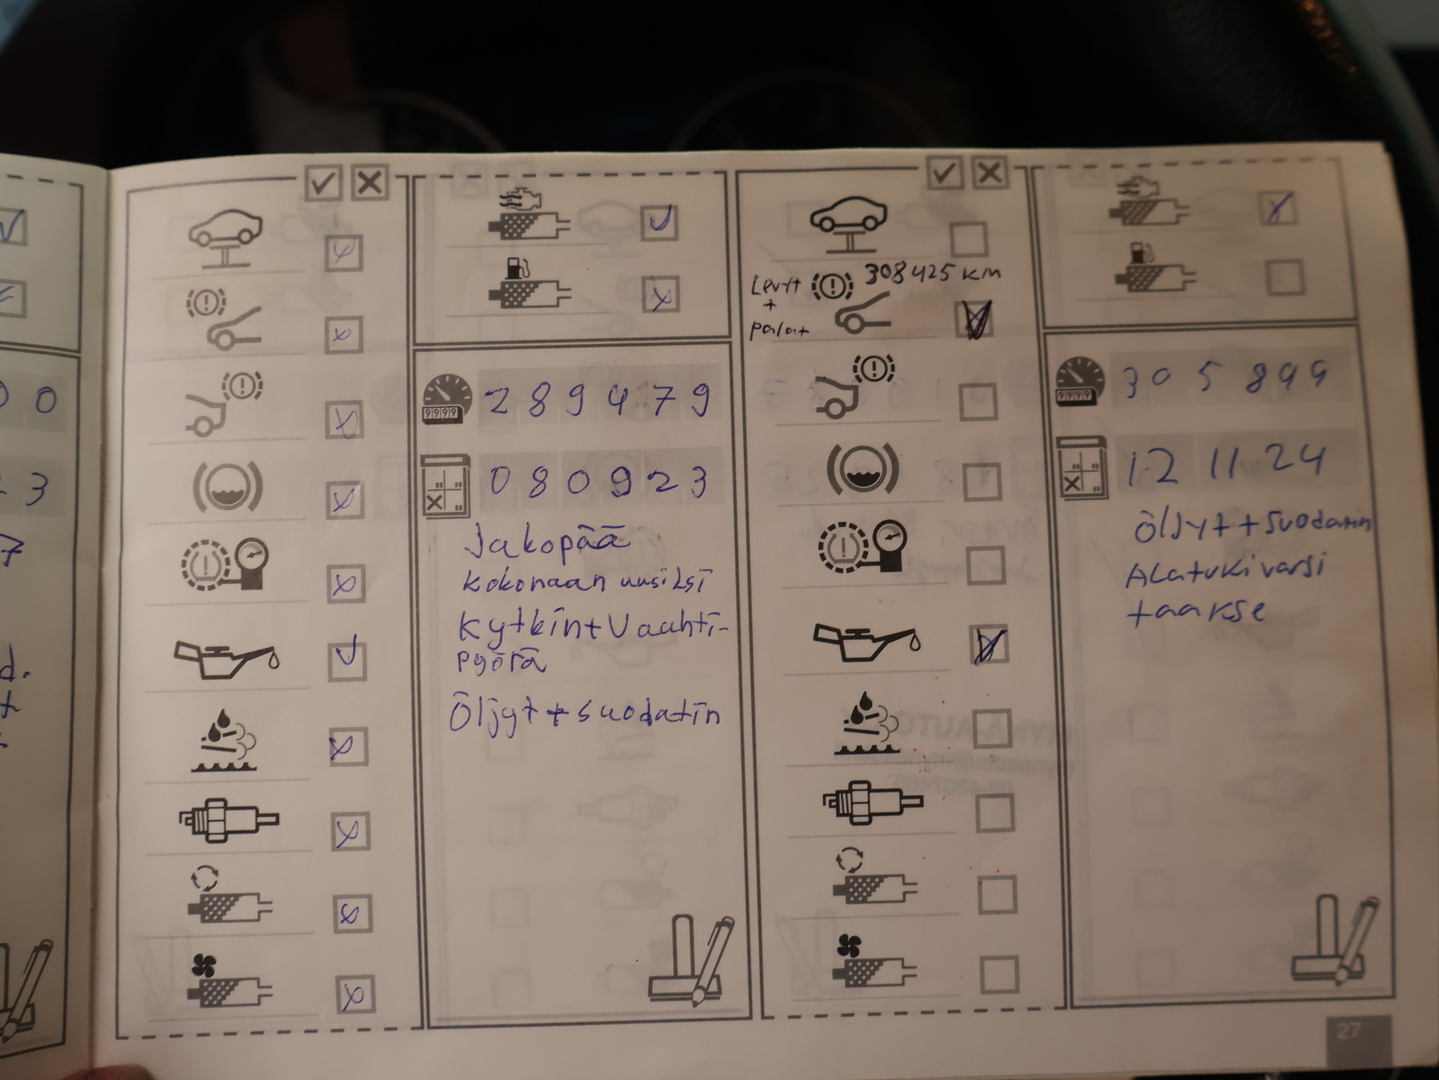 0 0
3
7
d.
2 8 9 4 7 9
0 8 0 9 2 3
Jakopää
kokonaan uusiksi
Kytkin + Vauhti-
pyörä
Öljyt + suodatin
Levyt
+
palat
308425 km
3 0 5 8 9 9
12 11 24
Öljyt + suodatin
Alatukivarsi
taakse
27